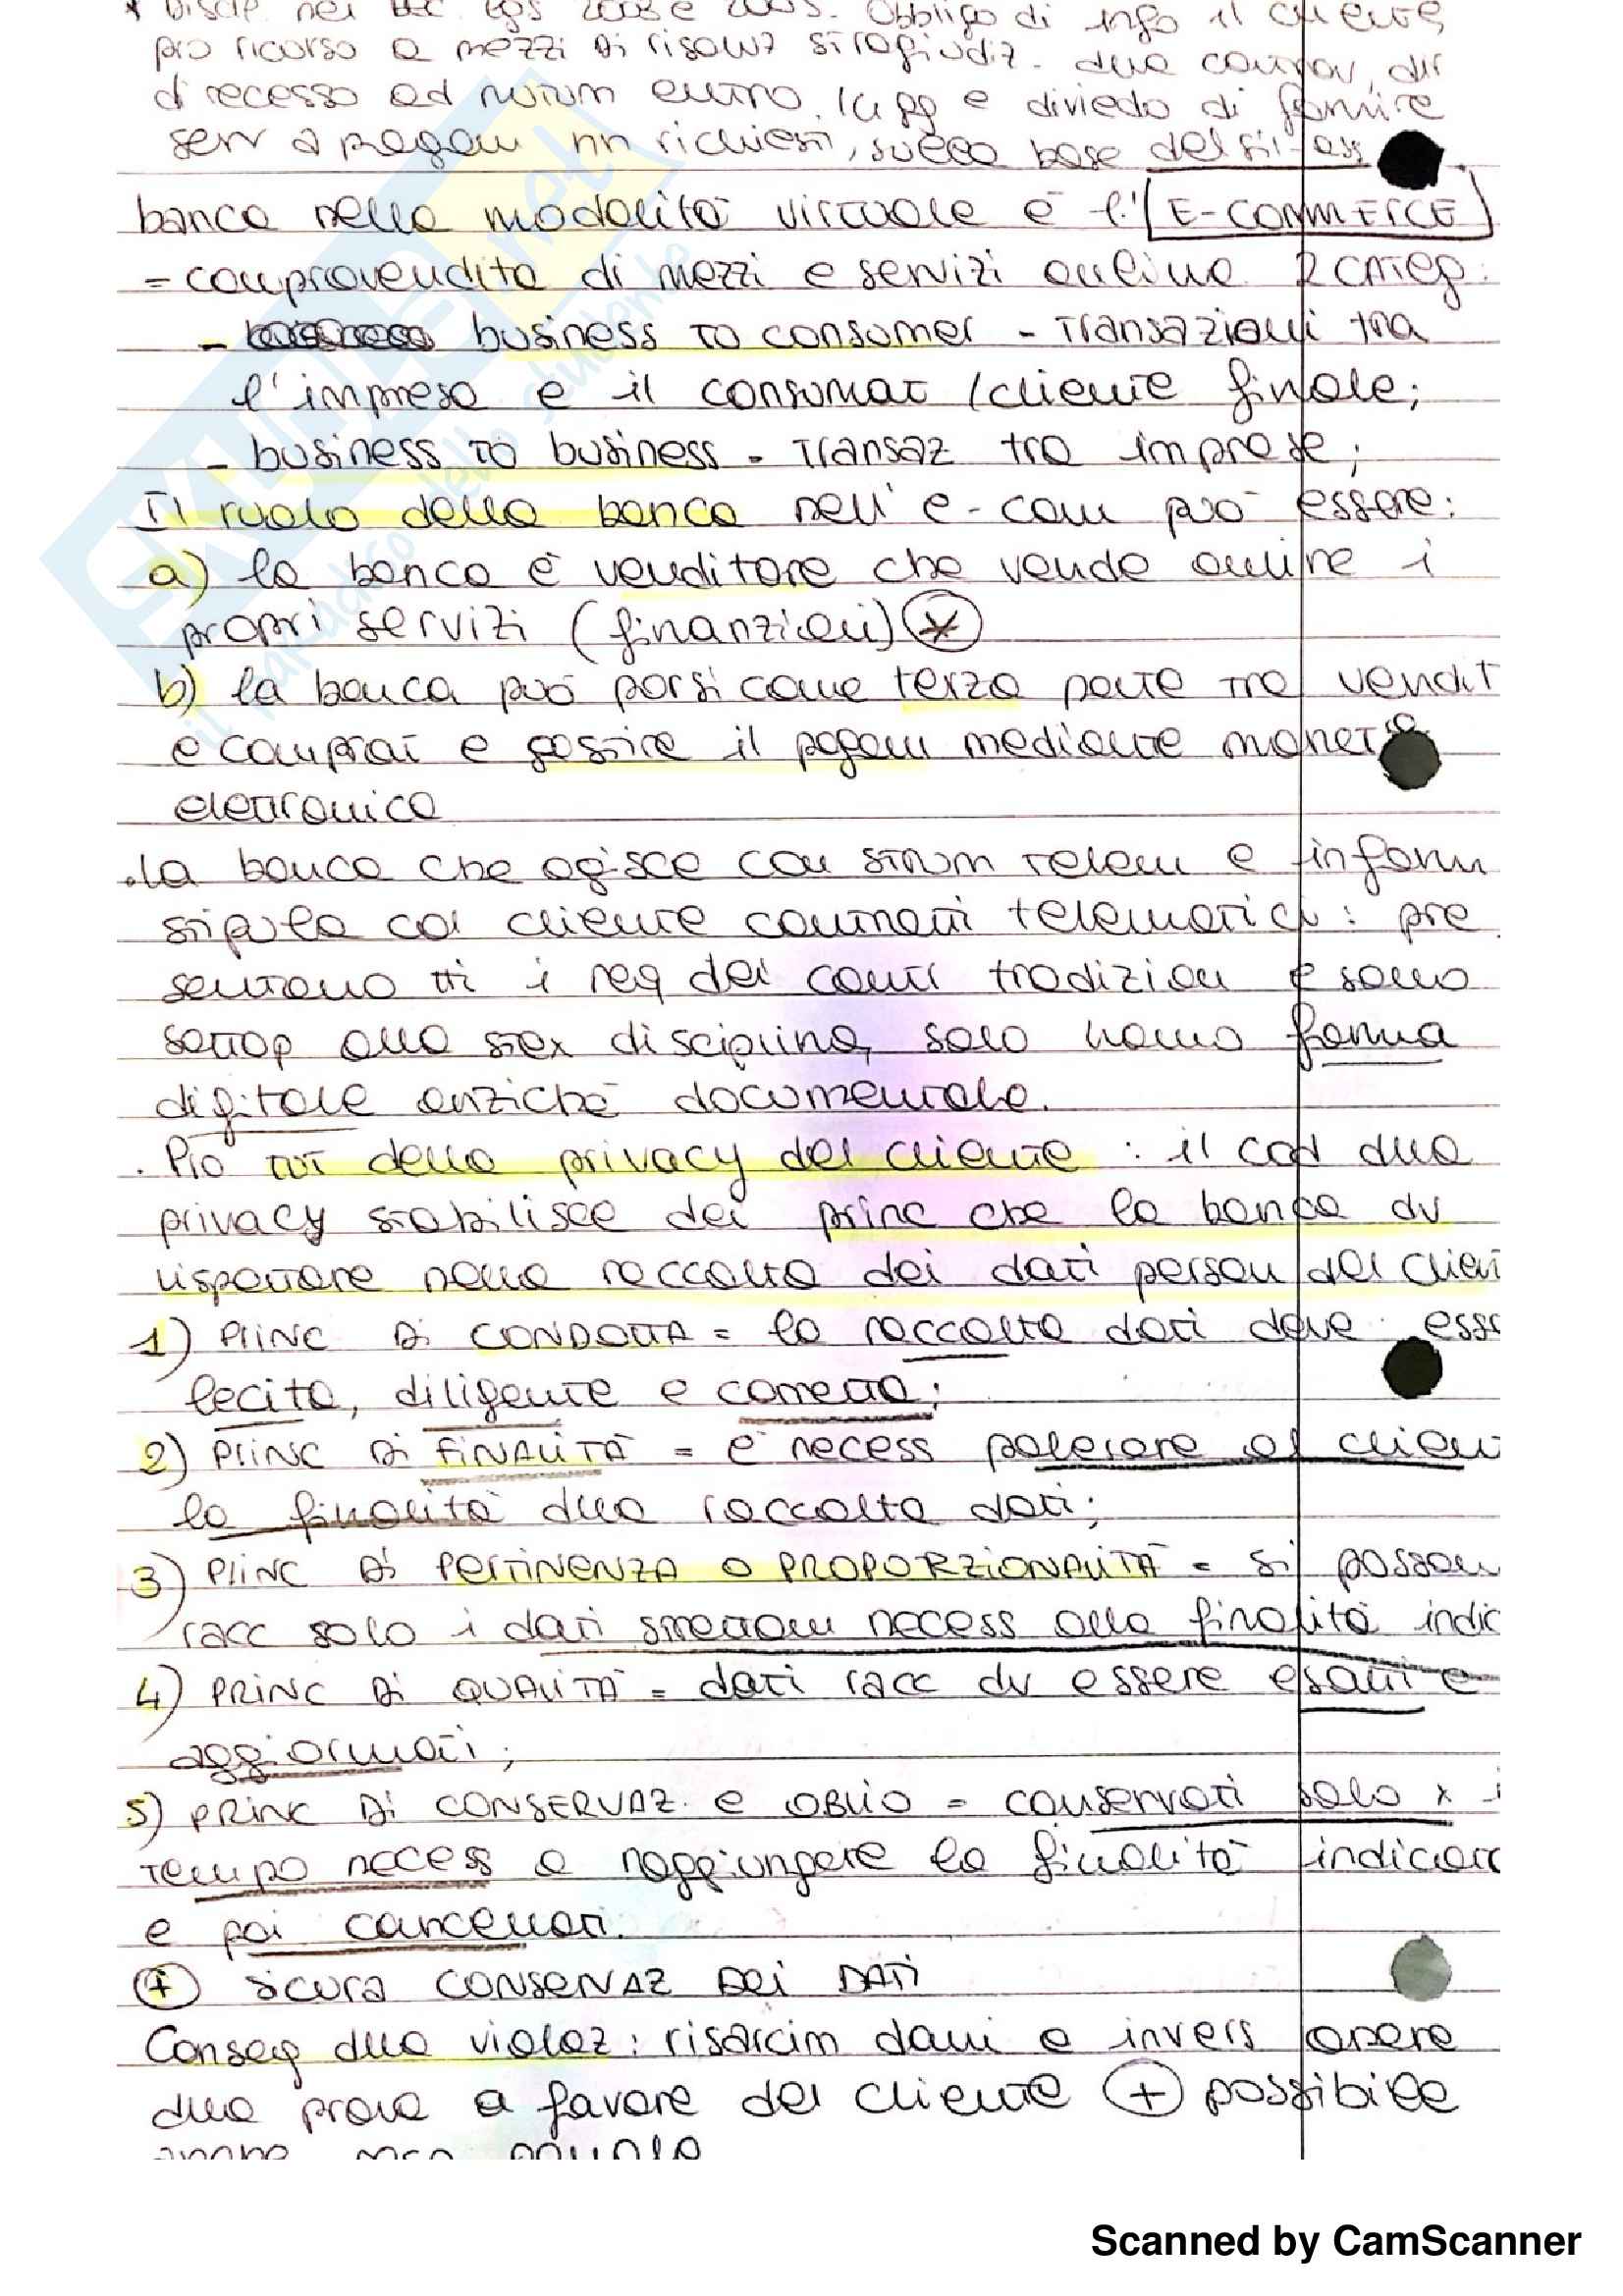 * Discip nei Dec Lgs 2003 e 2005. Obbligo di info il cliente,
pro ricorso a mezzi di risoluz stragiudiz. dlla controv, dir
di recesso ad nutum entro 14 gg e divieto di fornire
serv a pagam nn richiesti, sulla base del sil-ass.
banca nella modalità virtuale è l'E-COMMERCE
= compravendita di mezzi e servizi online 2 categ:
- business to consumer - transazioni tra
l'impresa e il consumat/cliente finale;
- business to business - transaz tra imprese;
Il ruolo della banca nell'e-com può essere:
a) la banca è venditore che vende online i
propri servizi (finanziari) *
b) la banca può porsi come terza parte tra vendit
e comprat e gestire il pagam mediante moneta
elettronica
.la banca che agisce con strum telem e inform
stipula col cliente contratti telematici: pre
sentano tti i req dei contr tradizion e sono
sottop alla stex disciplina, solo hanno forma
digitale anziché documentale.
. Più tut della privacy del cliente: il cod dlla
privacy stabilisce dei princ che la banca dv
rispettare nella raccolta dei dati person del clien
1) PRINC DI CONDOTTA = la raccolta dati deve esse
lecita, diligente e corretta;
2) PRINC DI FINALITÀ = è necess palesare al clien
la finalità dlla raccolta dati;
3) PRINC DI PERTINENZA O PROPORZIONALITÀ = si posson
racc solo i dati strettam necess alla finalità indic
4) PRINC DI QUALITÀ = dati racc dv essere esatti e
aggiornati;
5) PRINC DI CONSERVAZ. e OBLIO = conservati solo x i
tempo necess a raggiungere la finalità indicata
e poi cancellati.
+ SICURA CONSERVAZ DEI DATI
Conseg dlla violaz: risarcim danni e invers onere
dlla prova a favore del cliente + possibile
Scanned by CamScanner